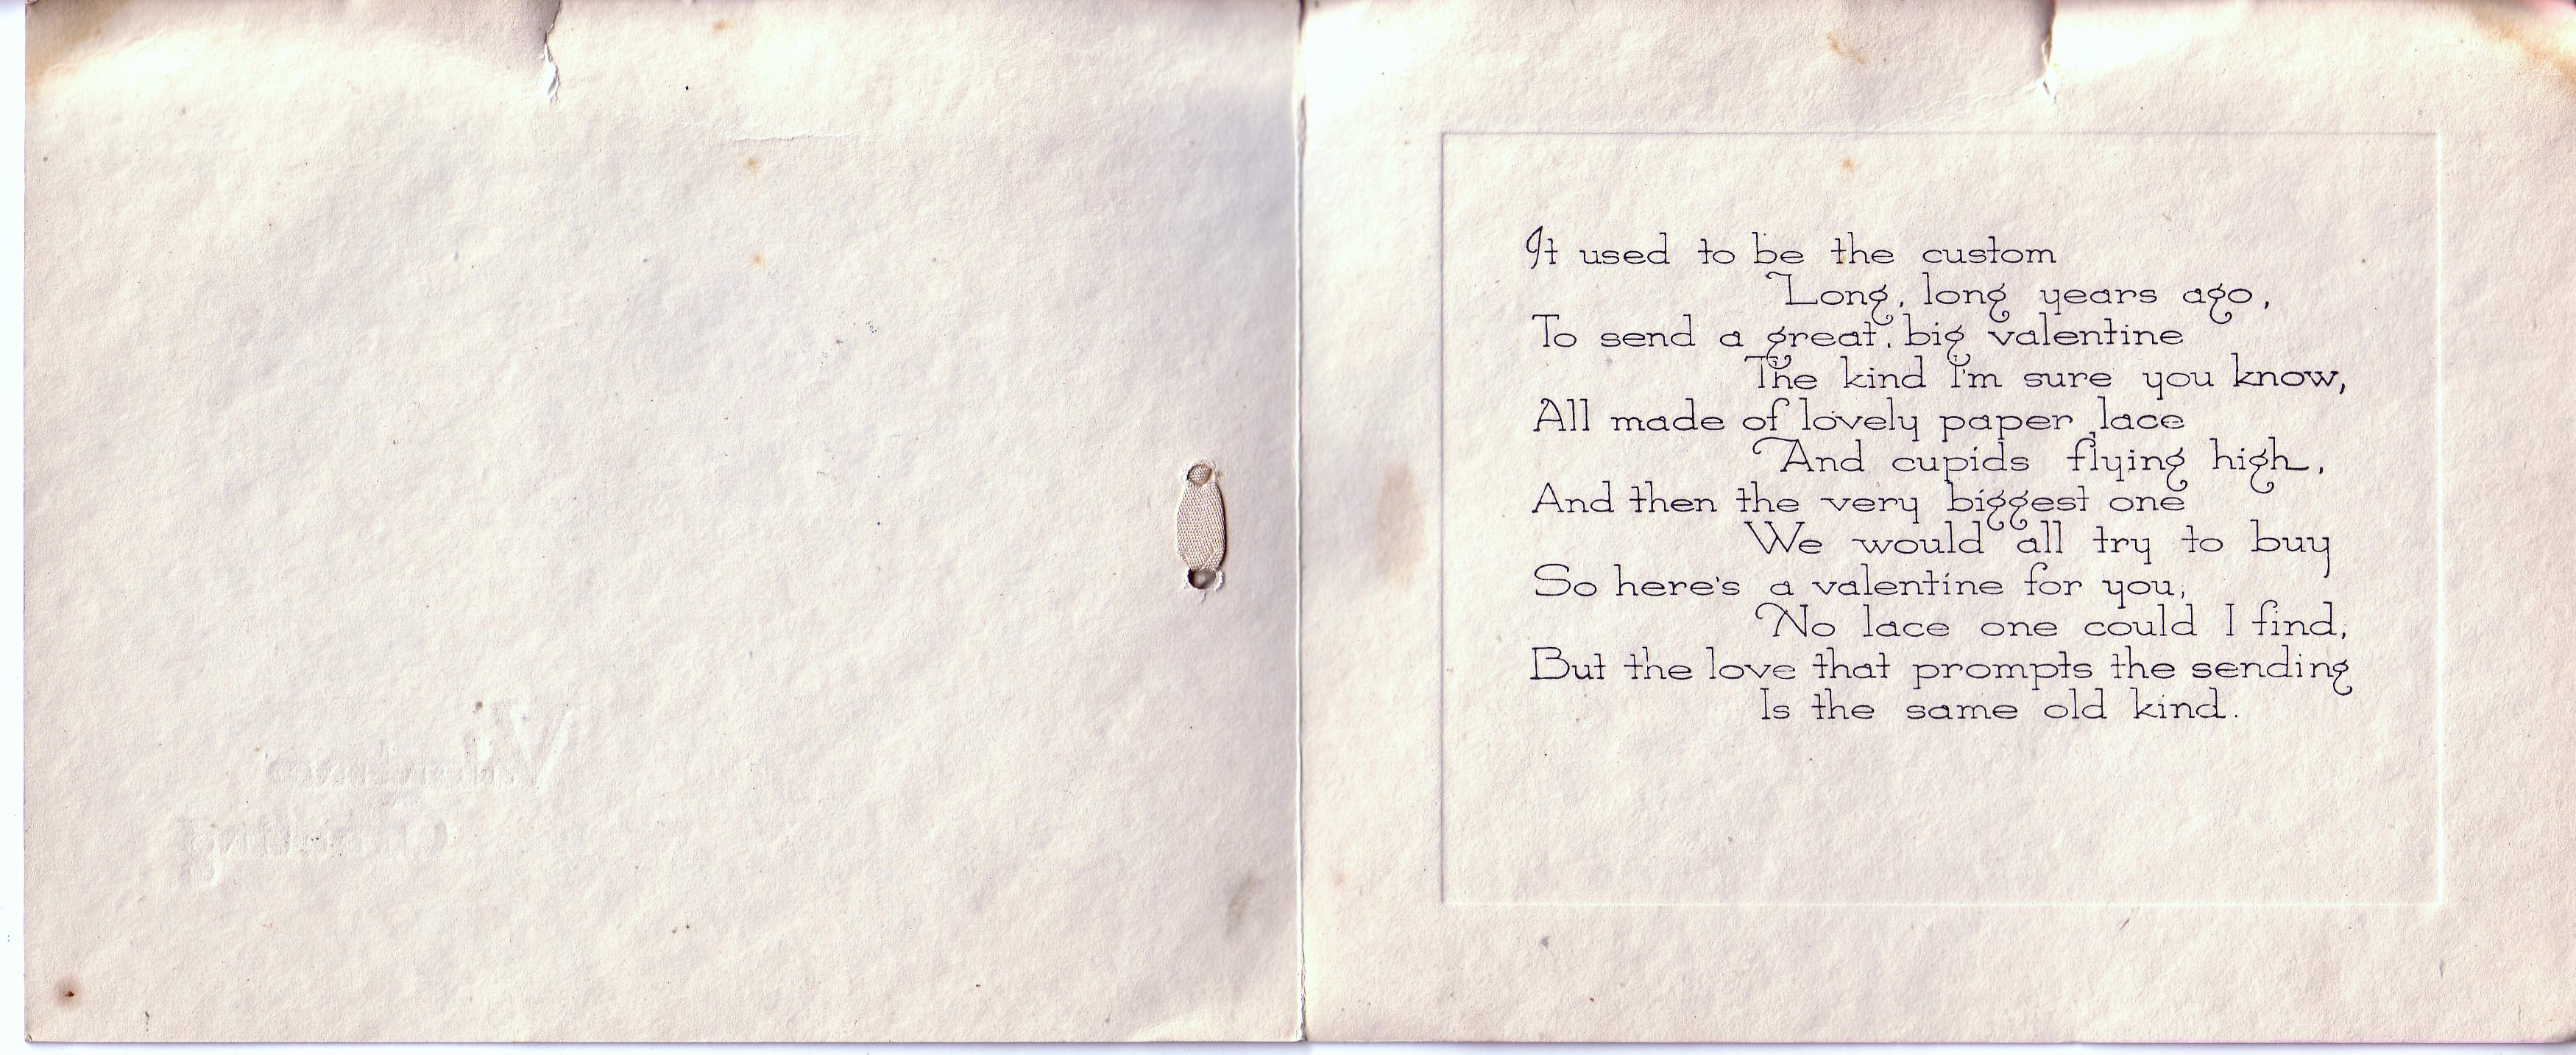 It used to be the custom
Long, long years ago,
To send a great, big valentine
The kind I'm sure you know,
All made of lovely paper lace
And cupids flying high,
And then the very biggest one
We would all try to buy
So here's a valentine for you,
No lace one could I find,
But the love that prompts the sending
Is the same old kind.